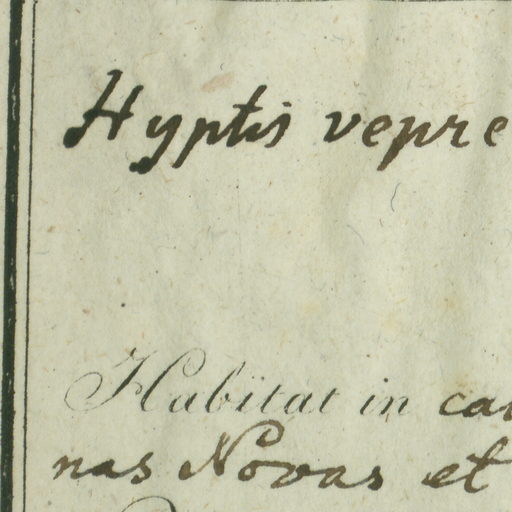 Hyptis vepre
Habitat in
nas Novas et